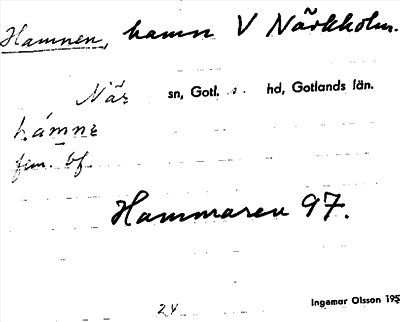 Hamnen, hamn V Närkholm.
När sn, Gotl. s. hd, Gotlands län.
hámnę
fem. bf.
Hammaren 97.
24
Ingemar Olsson 195